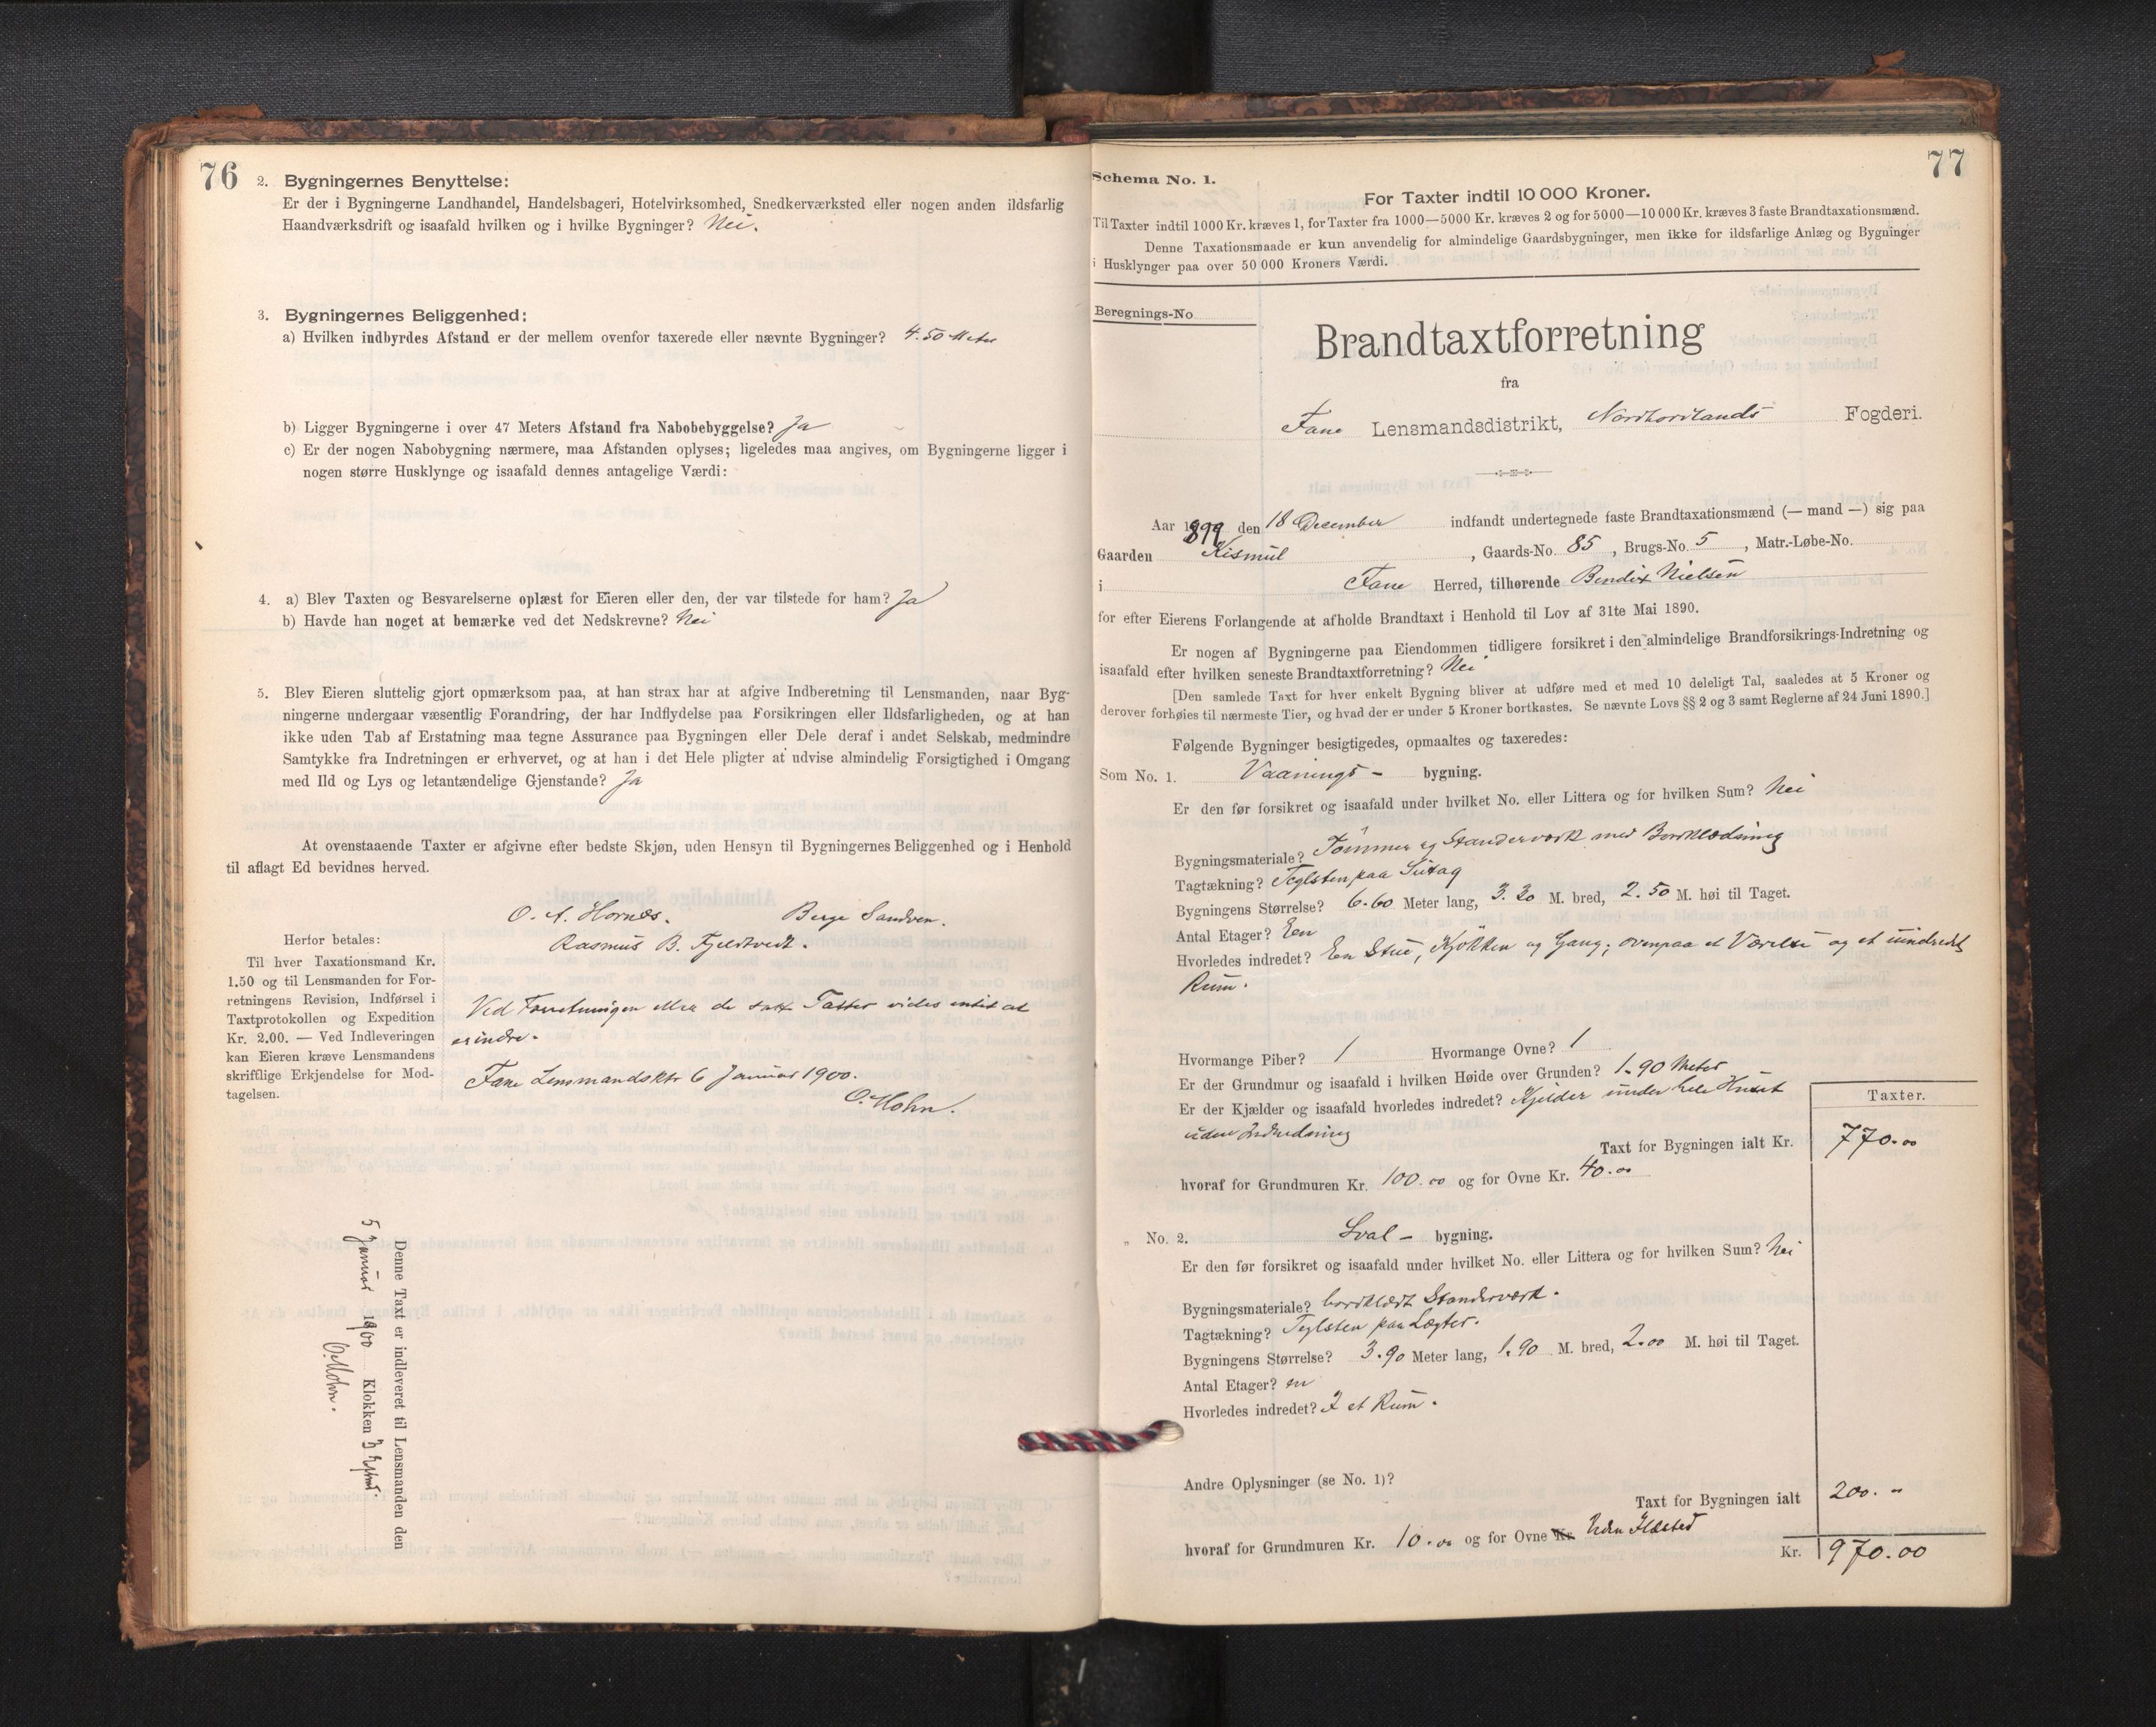 76
2. Bygningernes Benyttelse:
Er der i Bygningerne Landhandel, Handelsbageri, Hotelvirksomhed, Snedkerværksted eller nogen anden ildsfarlig
Haandværksdrift og isaafald hvilken og i hvilke Bygninger? Nei.
3. Bygningernes Beliggenhed:
a) Hvilken indbyrdes Afstand er der mellem ovenfor taxerede eller nævnte Bygninger? 4.50 Meter
b) Ligger Bygningerne i over 47 Meters Afstand fra Nabobebyggelse? Ja
c) Er der nogen Nabobygning nærmere, maa Afstanden oplyses; ligeledes maa angives, om Bygningerne ligger i
nogen større Husklynge og isaafald dennes antagelige Værdi:
4. a) Blev Taxten og Besvarelserne oplæst for Eieren eller den, der var tilstede for ham? Ja
b) Havde han noget at bemærke ved det Nedskrevne? Nei
5. Blev Eieren sluttelig gjort opmærksom paa, at han strax har at afgive Indberetning til Lensmanden, naar Byg-
ningerne undergaar væsentlig Forandring, der har Indflydelse paa Forsikringen eller Ildsfarligheden, og at han
ikke uden Tab af Erstatning maa tegne Assurance paa Bygningen eller Dele deraf i andet Selskab, medmindre
Samtykke fra Indretningen er erhvervet, og at han i det Hele pligter at udvise almindelig Forsigtighed i Omgang
med Ild og Lys og letantændelige Gjenstande? Ja
At ovenstaaende Taxter er afgivne efter bedste Skjøn, uden Hensyn til Bygningernes Beliggenhed og i Henhold
til aflagt Ed bevidnes herved.
O. A. Hornæs. Berge Sandven.
Rasmus B. Fjeldtvedt.
Herfor betales:
Til hver Taxationsmand Kr.
1.50 og til Lensmanden for For-
retningens Revision, Indførsel i
Taxtprotokollen og Expedition
Kr. 2.00. — Ved Indleveringen
kan Eieren kræve Lensmandens
skriftlige Erkjendelse for Mod-
tagelsen.
Ved Forretningen eller de satte Taxter vides intet at
erindre.
Fane Lensmandsktr 6 Januar 1900.
O. Mohn.
Denne Taxt er indleveret til Lensmanden den
5 Januar 1900 Klokken 3 Eftmd.
O. Mohn.
77
Schema No. 1.
For Taxter indtil 10 000 Kroner.
Til Taxter indtil 1000 Kr. kræves 1, for Taxter fra 1000—5000 Kr. kræves 2 og for 5000—10 000 Kr. kræves 3 faste Brandtaxationsmænd.
Denne Taxationsmaade er kun anvendelig for almindelige Gaardsbygninger, men ikke for ildsfarlige Anlæg og Bygninger
i Husklynger paa over 50 000 Kroners Værdi.
Beregnings-No
Brandtaxtforretning
fra
Fane Lensmandsdistrikt, Nordhordlands Fogderi.
Aar 1899 den 18 December indfandt undertegnede faste Brandtaxationsmænd (— mand —) sig paa
Gaarden Kismul, Gaards-No. 85, Brugs-No. 5, Matr.-Løbe-No.
i Fane Herred, tilhørende Bendix Nielsen
for efter Eierens Forlangende at afholde Brandtaxt i Henhold til Lov af 31te Mai 1890.
Er nogen af Bygningerne paa Eiendommen tidligere forsikret i den almindelige Brandforsikrings-Indretning og
isaafald efter hvilken seneste Brandtaxtforretning? Nei
[Den samlede Taxt for hver enkelt Bygning bliver at udføre med et med 10 deleligt Tal, saaledes at 5 Kroner og
derover forhøies til nærmeste Tier, og hvad der er under 5 Kroner bortkastes. Se nævnte Lovs §§ 2 og 3 samt Reglerne af 24 Juni 1890.]
Følgende Bygninger besigtigedes, opmaaltes og taxeredes:
Som No. 1. Vaanings- bygning.
Er den før forsikret og isaafald under hvilket No. eller Littera og for hvilken Sum? Nei
Bygningsmateriale? Tömmer og Standerværk med Bordklædning
Tagtækning? Teglsten paa Sutag
Bygningens Størrelse? 6.60 Meter lang, 3.30 M. bred, 2.50 M. høi til Taget.
Antal Etager? Een
Hvorledes indredet? En Stue, Kjökken og Gang; ovenpaa et Værelse og et uindredet
Rum.
Hvormange Piber? 1 Hvormange Ovne? 1
Er der Grundmur og isaafald i hvilken Høide over Grunden? 1.90 Meter
Er der Kjælder og isaafald hvorledes indredet? Kjelder under hele Huset
uden Indredning
Taxter.
Taxt for Bygningen ialt Kr. 770.00
hvoraf for Grundmuren Kr. 100.00 og for Ovne Kr. 40.00
„ No. 2. Sval- bygning.
Er den før forsikret og isaafald under hvilket No. eller Littera og for hvilken Sum? Nei
Bygningsmateriale? bordklædt Standerværk.
Tagtækning? Teglsten paa Lægter.
Bygningens Størrelse? 3.90 Meter lang, 1.90 M. bred, 2.00 M. høi til Taget.
Antal Etager? en
Hvorledes indredet? I et Rum.
Andre Oplysninger (se No. 1)?
Taxt for Bygningen ialt 200. "
hvoraf for Grundmuren Kr. 10.00 og for Ovne Kr. Uden Ildsted
Kr. 970.00